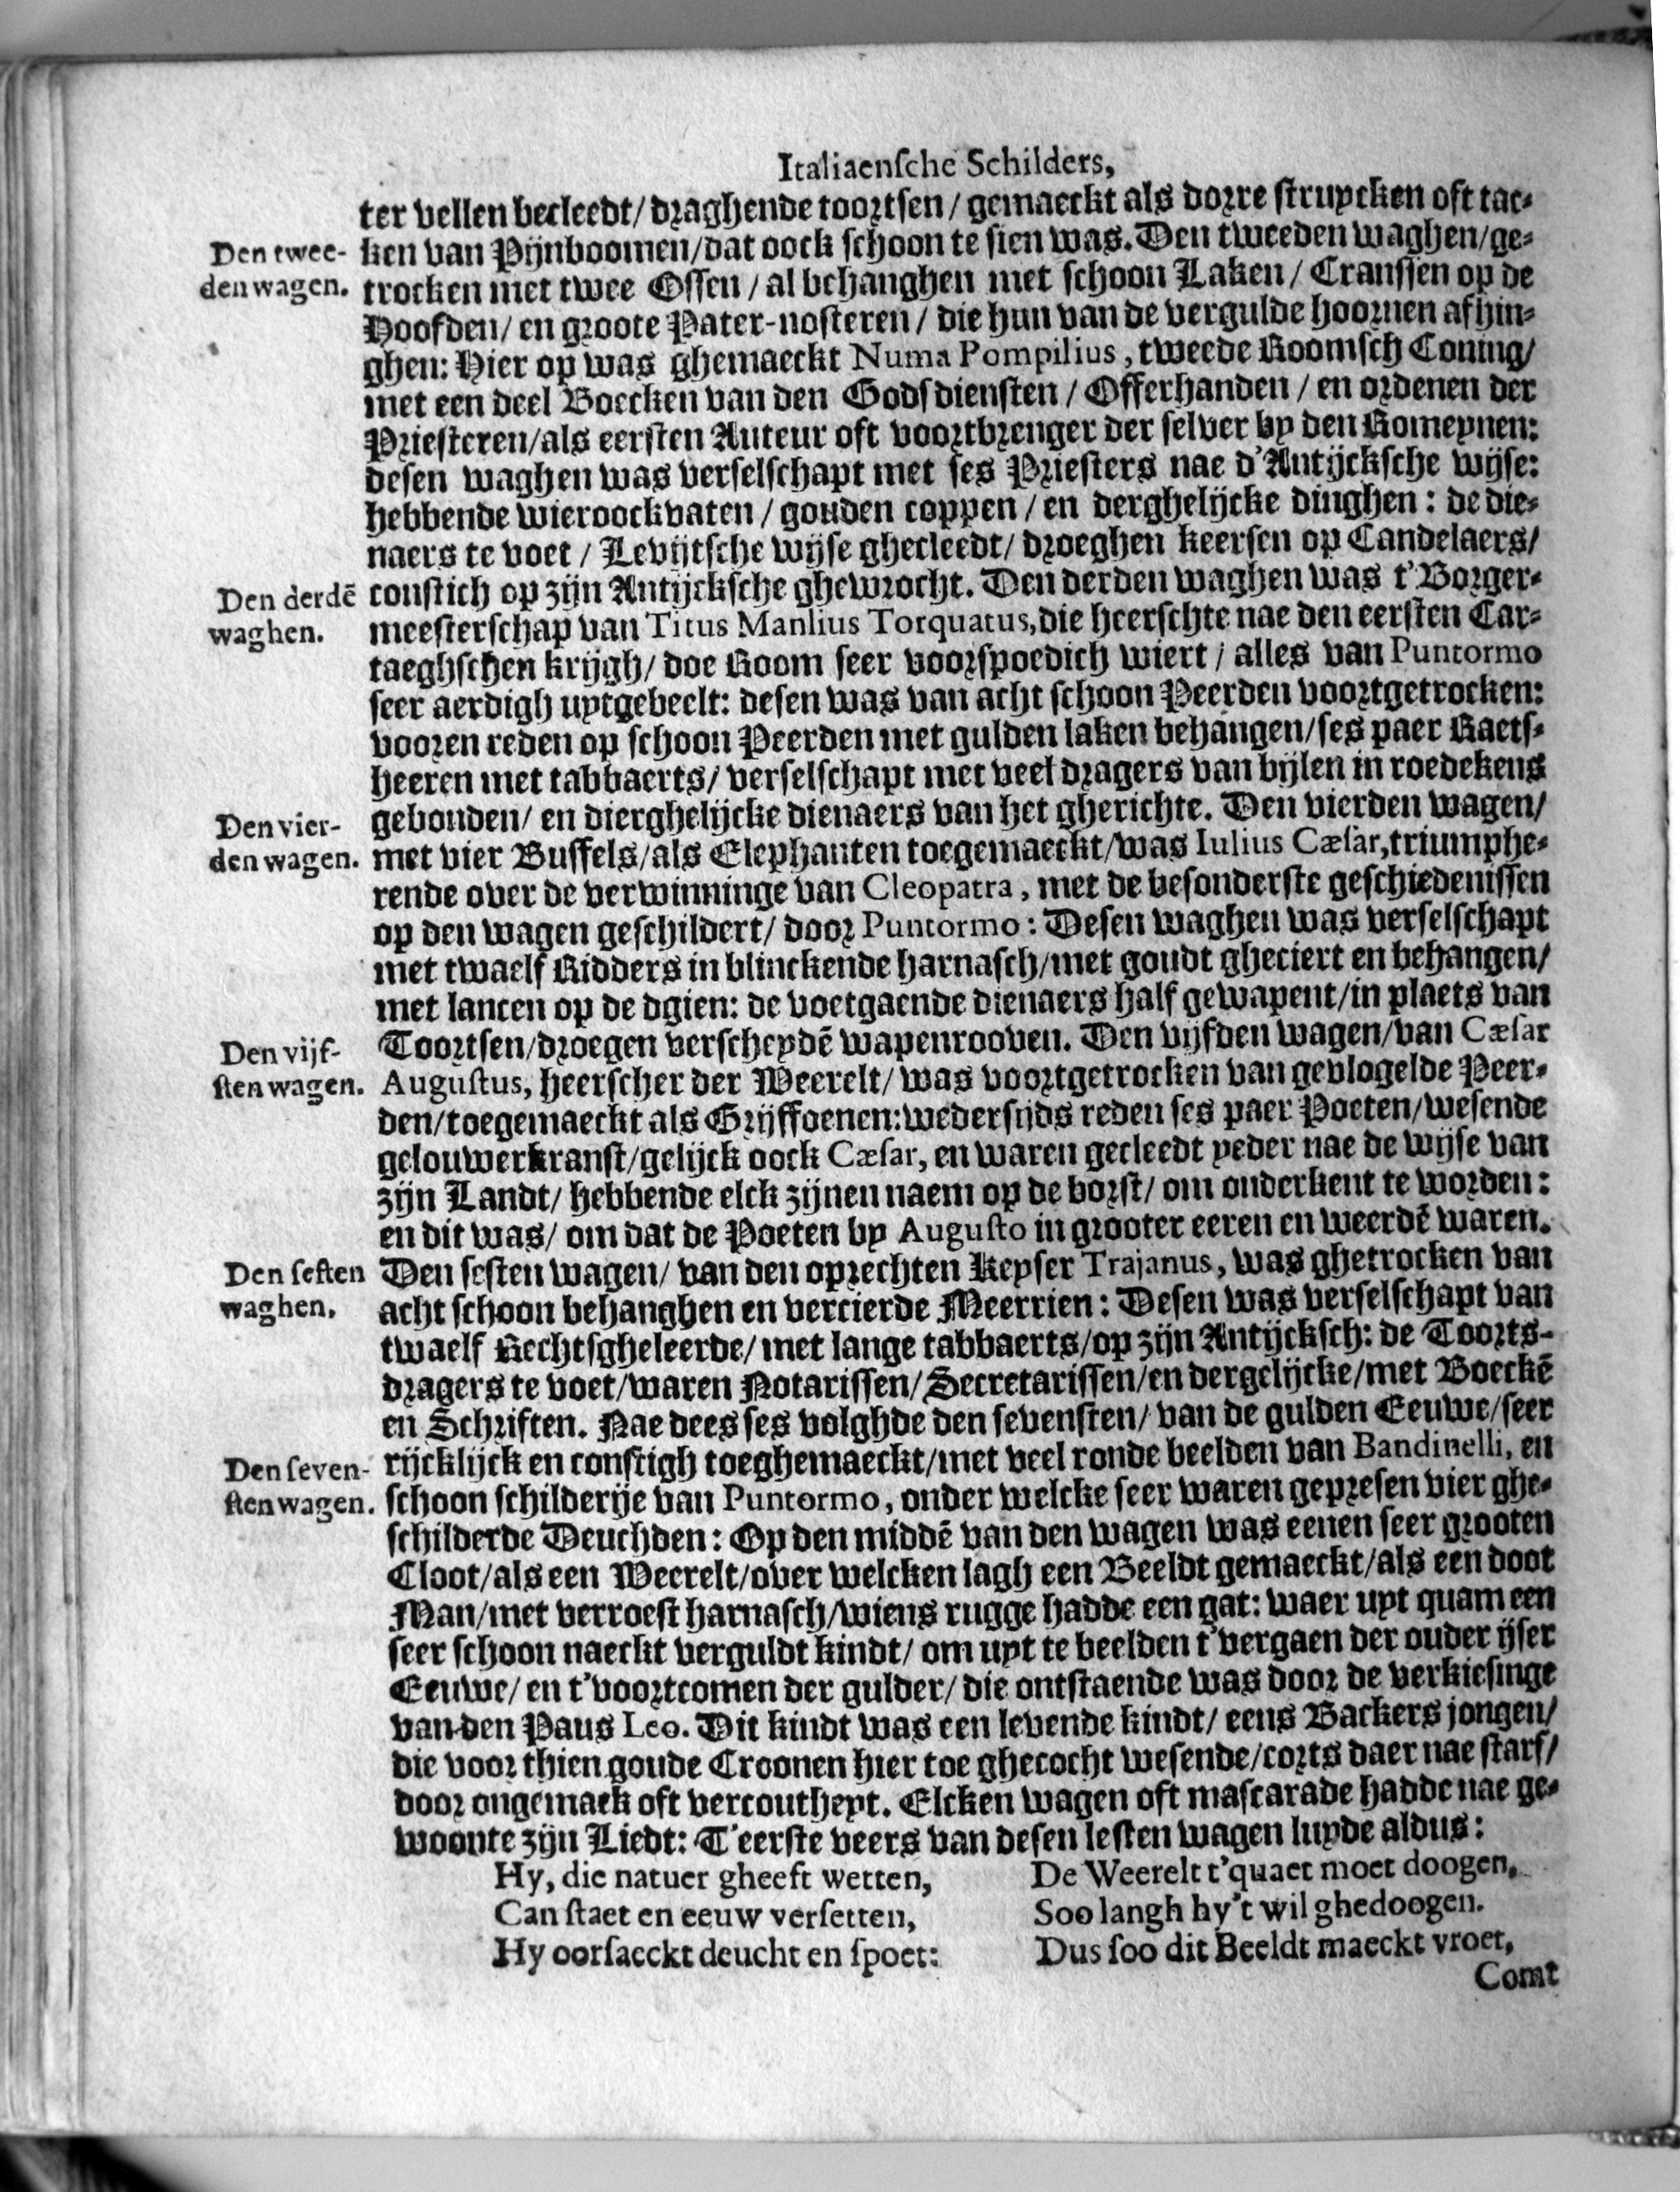 Italiaensche Schilders,
ter vellen becleedt/ draghende toortsen/ gemaeckt als dorre struycken oft tac-
Den twee-
den wagen.
ken van Pijnboomen/ dat oock schoon te sien was. Den tweeden waghen/ ge-
trocken met twee Ossen/ al behanghen met schoon Laken/ Cranssen op de
Hoofden/ en groote Pater-nosteren/ die hun van de vergulde hoornen afhin-
ghen: Hier op was ghemaeckt Numa Pompilius, tweede Roomsch Coning/
met een deel Boecken van den Godsdiensten/ Offerhanden/ en ordenen der
Priesteren/ als eersten Auteur oft voortbrenger der selver by den Romeynen:
desen waghen was verselschapt met ses Priesters nae d'Antijcksche wijse:
hebbende wieroockvaten/ gouden coppen/ en derghelijcke dinghen: de die-
naers te voet/ Levijtsche wijse ghecleedt/ droeghen keersen op Candelaers/
Den derdē
waghen.
constich op zijn Antijcksche ghewrocht. Den derden waghen was t'Borger-
meesterschap van Titus Manlius Torquatus, die heerschte nae den eersten Car-
taeghschen krijgh/ doe Room seer voorspoedich wiert/ alles van Puntormo
seer aerdigh uytgebeelt: desen was van acht schoon Peerden voortgetrocken:
vooren reden op schoon Peerden met gulden laken behangen/ ses paer Raets-
heeren met tabbaerts/ verselschapt met veel dragers van bijlen in roedekens
Den vier-
den wagen.
gebonden/ en dierghelijcke dienaers van het gherichte. Den vierden wagen/
met vier Buffels/ als Elephanten toegemaeckt/ was Iulius Cæsar, triumphe-
rende over de verwinninge van Cleopatra, met de besonderste geschiedenissen
op den wagen geschildert/ door Puntormo: Desen waghen was verselschapt
met twaelf Ridders in blinckende harnasch/ met goudt gheciert en behangen/
met lancen op de dgien: de voetgaende dienaers half gewapent/ in plaets van
Den vijf-
sten wagen.
Toortsen/ droegen verscheydē wapenrooven. Den vijfden wagen/ van Cæsar
Augustus, heerscher der Weerelt/ was voortgetrocken van gevlogelde Peer-
den/ toegemaeckt als Grijffoenen: wedersijds reden ses paer Poeten/ wesende
gelouwerkranst/ gelijck oock Cæsar, en waren gecleedt yeder nae de wijse van
zijn Landt/ hebbende elck zijnen naem op de borst/ om onderkent te worden:
en dit was/ om dat de Poeten by Augusto in grooter eeren en weerdē waren.
Den sesten
waghen.
Den sesten wagen/ van den oprechten Keyser Trajanus, was ghetrocken van
acht schoon behanghen en vercierde Meerrien: Desen was verselschapt van
twaelf Rechtsgheleerde/ met lange tabbaerts/ op zijn Antijcksch: de Toorts-
dragers te voet/ waren Notarissen/ Secretarissen/ en dergelijcke/ met Boeckē
en Schriften. Nae dees ses volghde den sevensten/ van de gulden Eeuwe/ seer
Den seven-
sten wagen.
rijcklijck en constigh toeghemaeckt/ met veel ronde beelden van Bandinelli, en
schoon schilderije van Puntormo, onder welcke seer waren gepresen vier ghe-
schilderde Deuchden: Op den middē van den wagen was eenen seer grooten
Cloot/ als een Weerelt/ over welcken lagh een Beeldt gemaeckt/ als een doot
Man/ met verroest harnasch/ wiens rugge hadde een gat: waer uyt quam een
seer schoon naeckt verguldt kindt/ om uyt te beelden t'vergaen der ouder ijser
Eeuwe/ en t'voortcomen der gulder/ die ontstaende was door de verkiesinge
van den Paus Leo. Dit kindt was een levende kindt/ eens Backers jongen/
die voor thien goude Croonen hier toe ghecocht wesende/ corts daer nae starf/
door ongemack oft vercoutheyt. Elcken wagen oft mascarade hadde nae ge-
woonte zijn Liedt: T'eerste veers van desen lesten wagen luyde aldus:
Hy, die natuer gheeft wetten,
Can staet en eeuw versetten,
Hy oorsaeckt deucht en spoet:
De Weerelt t'quaet moet doogen,
Soo langh hy't wil ghedoogen.
Dus soo dit Beeldt maeckt vroet,
Comt